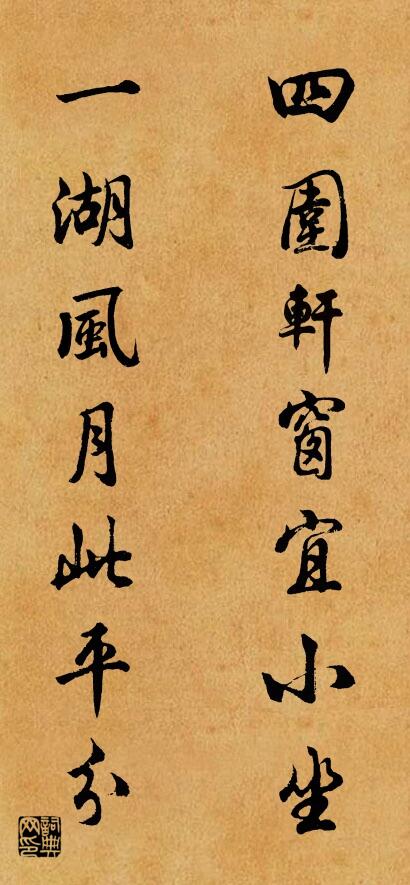 四圍軒窗宜小坐
一湖風月此平分
詞典網印